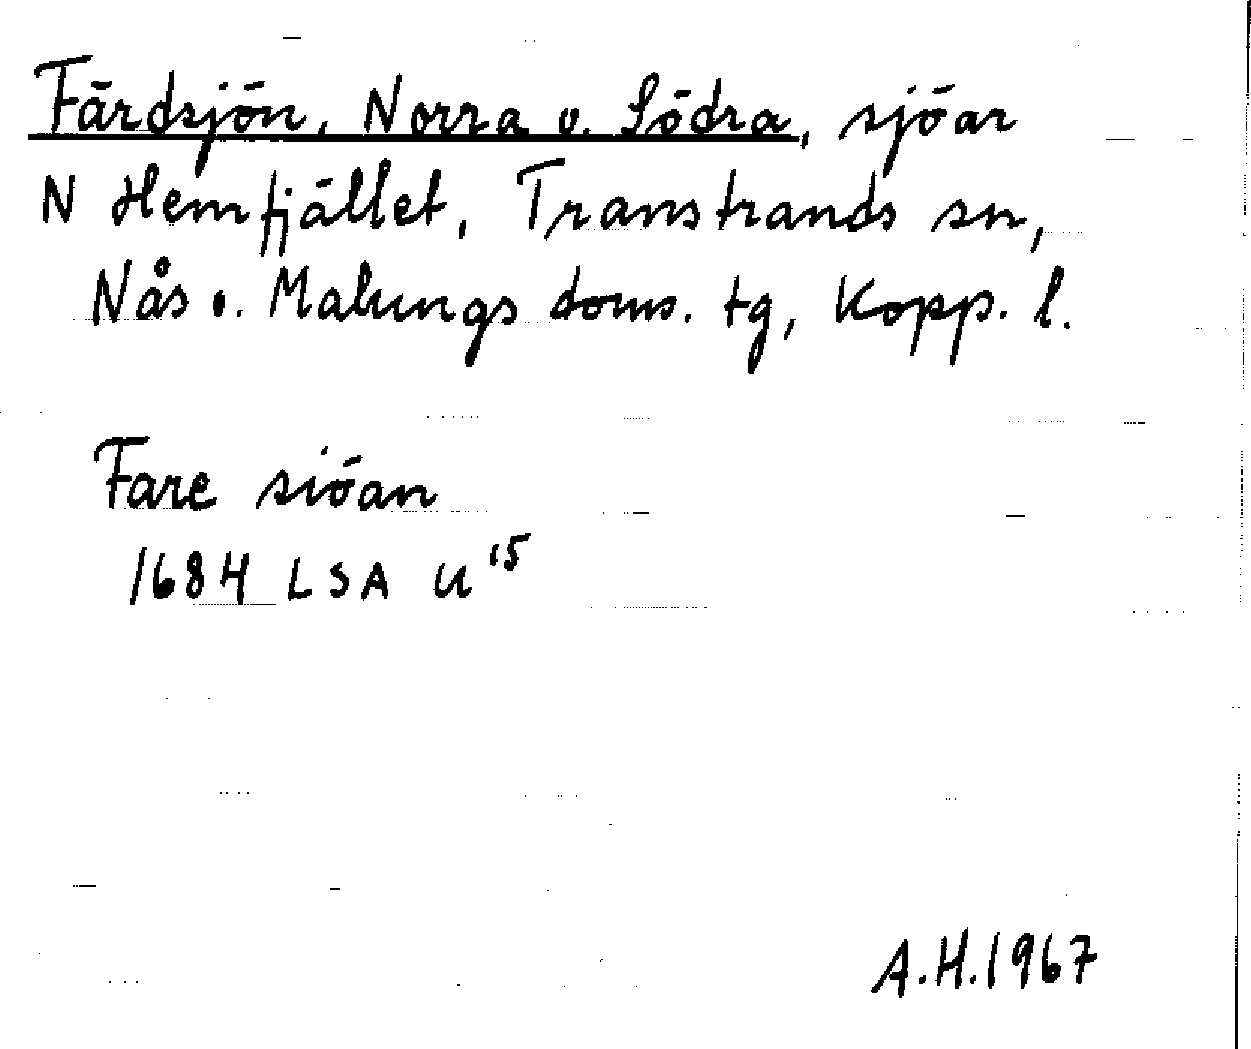 Färdsjön, Norra o. Södra, sjöar
N Hemfjället, Transtrands sn,
Nås o. Malungs doms. tg, Kopp. l.
Fare siöan
1684 LSA U15
A.H. 1967